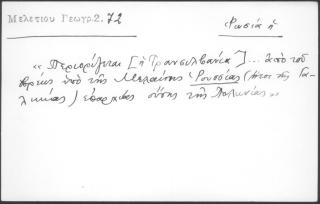 Μελετίου Γεωγρ. 2. 72
Ρωσία ἡ
« Περιορίζεται [ἡ Τρανσυλβανία] ... ἀπὸ τοῦ
ὑπὸ τῆς Μελαίνης Ῥουσσίας (ἤτοι τῆς Γα-
λικίας) ἐπαρχίας οὔσης τῆς Πολωνίας »